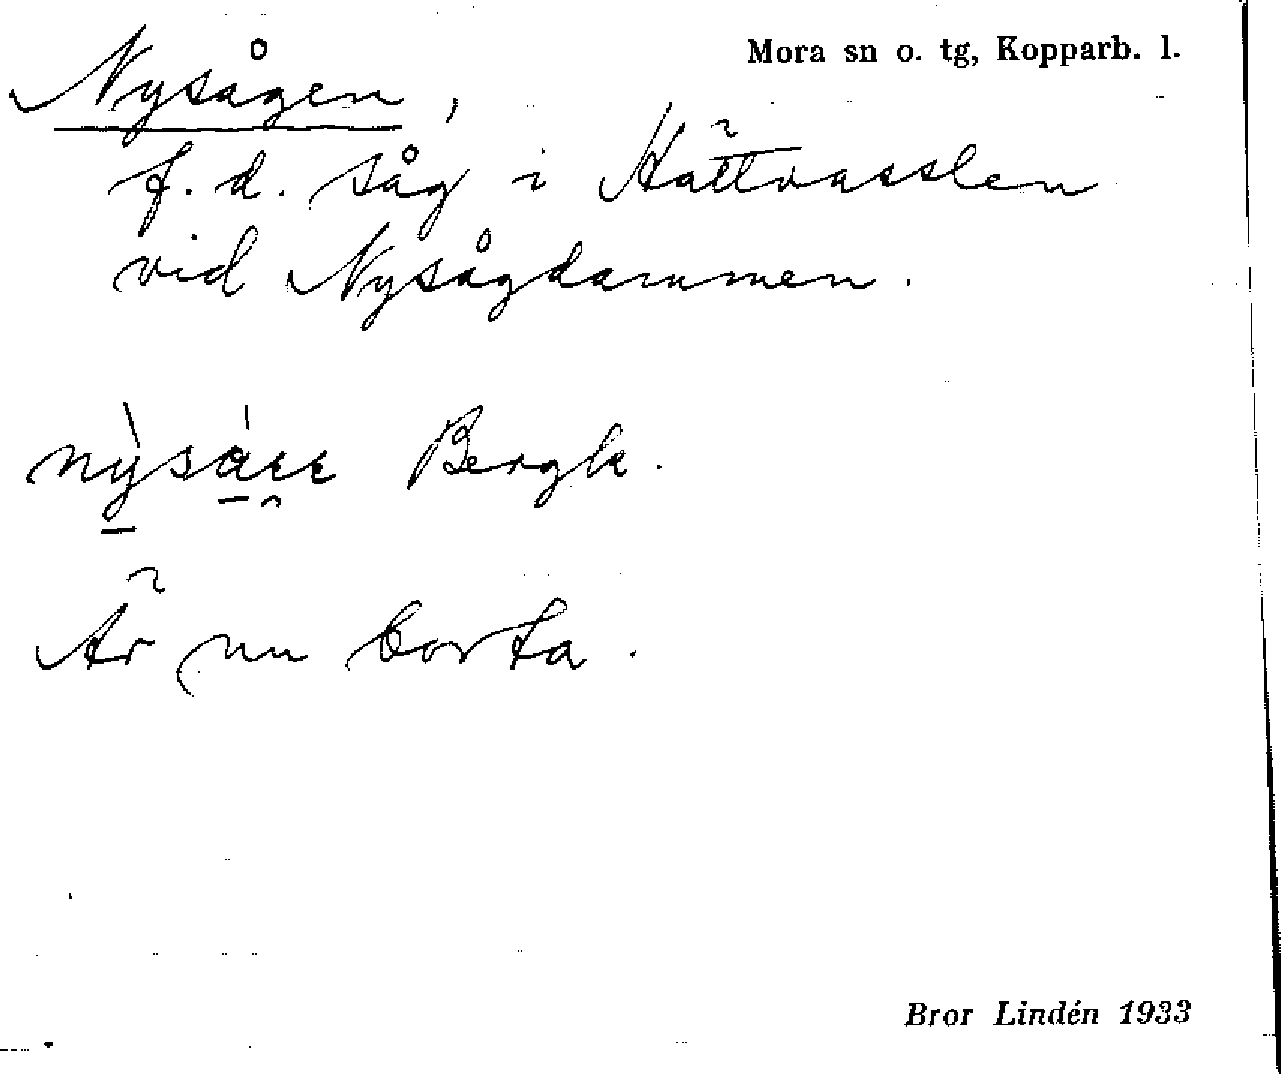 Mora sn o. tg, Kopparb. l.
Nysågen,
f. d. såg i Hättvasslen
vid Nysågdammen.
Bergk.
Är nu borta.
Bror Lindén 1933